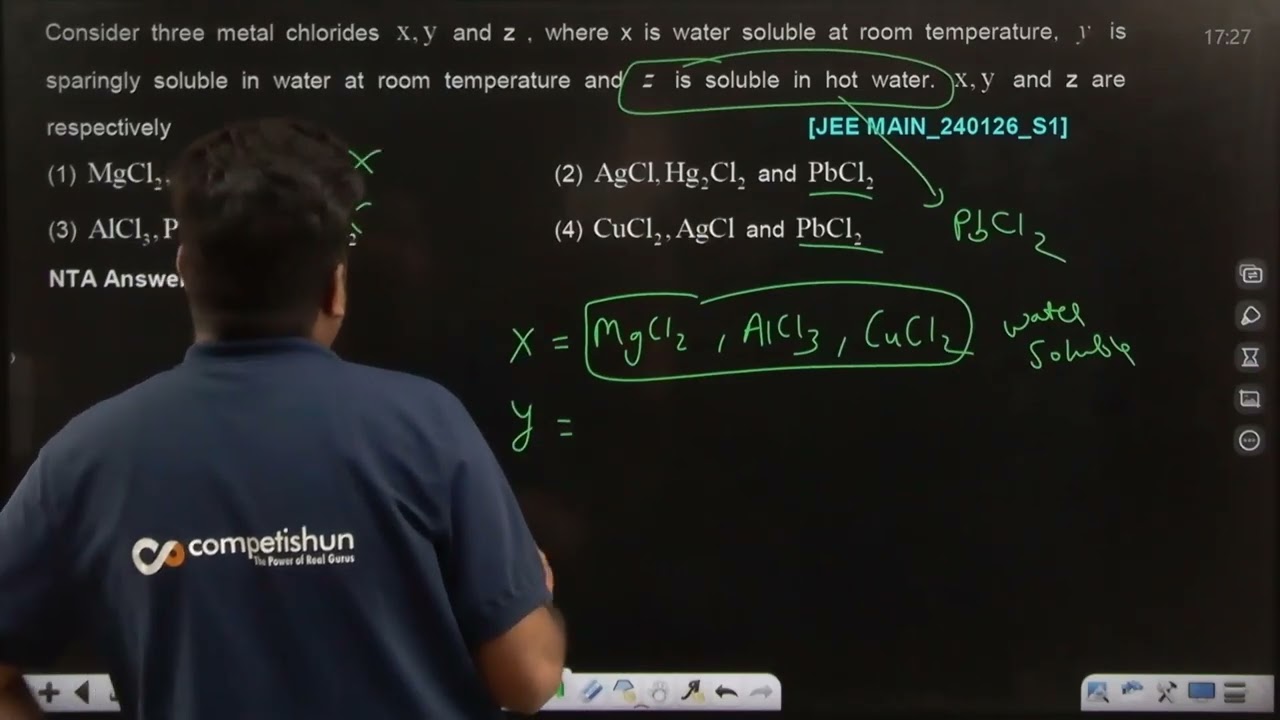 Consider three metal chlorides x, y and z , where x is water soluble at room temperature, y is
17:27
sparingly soluble in water at room temperature and z is soluble in hot water. x, y and z are
respectively
[JEE MAIN_240126_S1]
(1) MgCl₂,
X
(2) AgCl, Hg₂Cl₂ and PbCl₂
(3) AlCl₃, P
₂
(4) CuCl₂, AgCl and PbCl₂
PbCl₂
NTA Answe
X = MgCl₂ , AlCl₃ , CuCl₂ water soluble
y =
competishun
The Power of Real Gurus